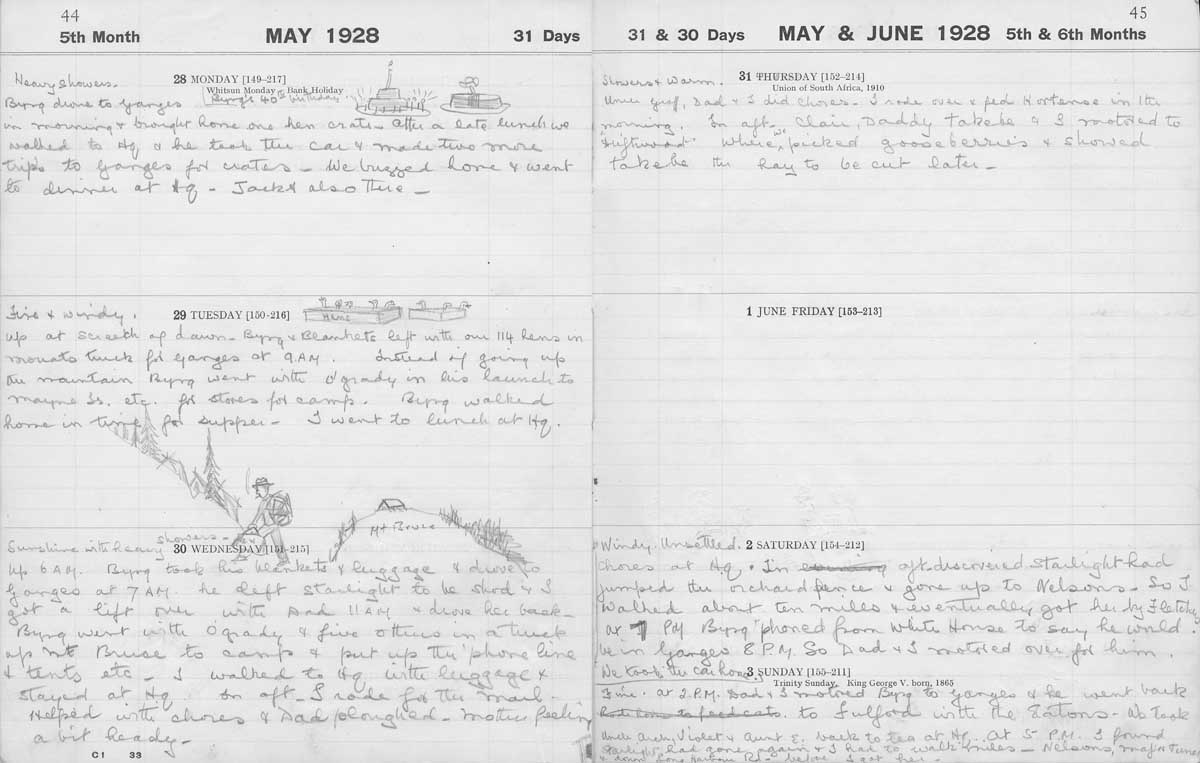 44
5th Month MAY 1928 31 Days
Heavy showers. 28 MONDAY [149-217]
Whitsun Monday Bank Holiday
Byrg's 40th birthday
Byrg drove to Ganges
in morning & brought home one hen crate. After a late lunch we
walked to Hq & he took the car & made two more
trips to Ganges for crates - We buzzed home & went
to dinner at Hq - Jack also there -
Fine & windy. 29 TUESDAY [150-216]
Hens
up at screech of dawn - Byrg & Blankets left with our 114 hens in
Mouats truck for Ganges at 9 AM. Instead of going up
the mountain Byrg went with O'Grady in his launch to
Mayne Is. etc. for stores for camp. Byrg walked
home in time for supper - I went to lunch at Hq.
Mt Bruce
Sunshine with heavy showers - 30 WEDNESDAY [151-215]
up 6 AM. Byrg took his blankets & luggage & drove to
Ganges at 7 AM. he left Starlight to be shod & I
got a lift over with Dad 11 AM & drove her back -
Byrg went with O'Grady & five others in a truck
up Mt Bruce to camp & put up the 'phone line
& tents etc - I walked to Hq with luggage &
stayed at Hq. In aft - I rode for the mail -
Helped with chores & Dad ploughed - Mother feeling
a bit heady -
C1 33
45
31 & 30 Days MAY & JUNE 1928 5th & 6th Months
Showers & Warm. 31 THURSDAY [152-214]
Union of South Africa, 1910
Dad & I did chores - I rode over & fed Hortense in the
morning. In aft - Clair, Daddy Takebe & I motored to
"Driftwood" where we picked gooseberries & showed
Takebe the hay to be cut later -
1 JUNE FRIDAY [153-213]
Windy. Unsettled. 2 SATURDAY [154-212]
Chores at Hq. In aft. discovered Starlight had
jumped the orchard fence & gone up to Nelsons - So I
walked about ten miles & eventually got her by Fletchers
at 7 PM Byrg 'phoned from White House to say he would
be in Ganges 8 P.M. So Dad & I motored over for him.
We took the car home 3 SUNDAY [155-211]
Trinity Sunday. King George V. born, 1865
Fine. at 2 P.M. Dad & I motored Byrg to Ganges & he went back
Rode home to feed cats. to Fulford with the Eatons - We took
Violet & Aunt E. back to tea at Hq. At 5 P.M. I found
Starlight had gone again & I had to walk miles - Nelsons, Major Turners
& down Long Harbour Rd - before I got her -